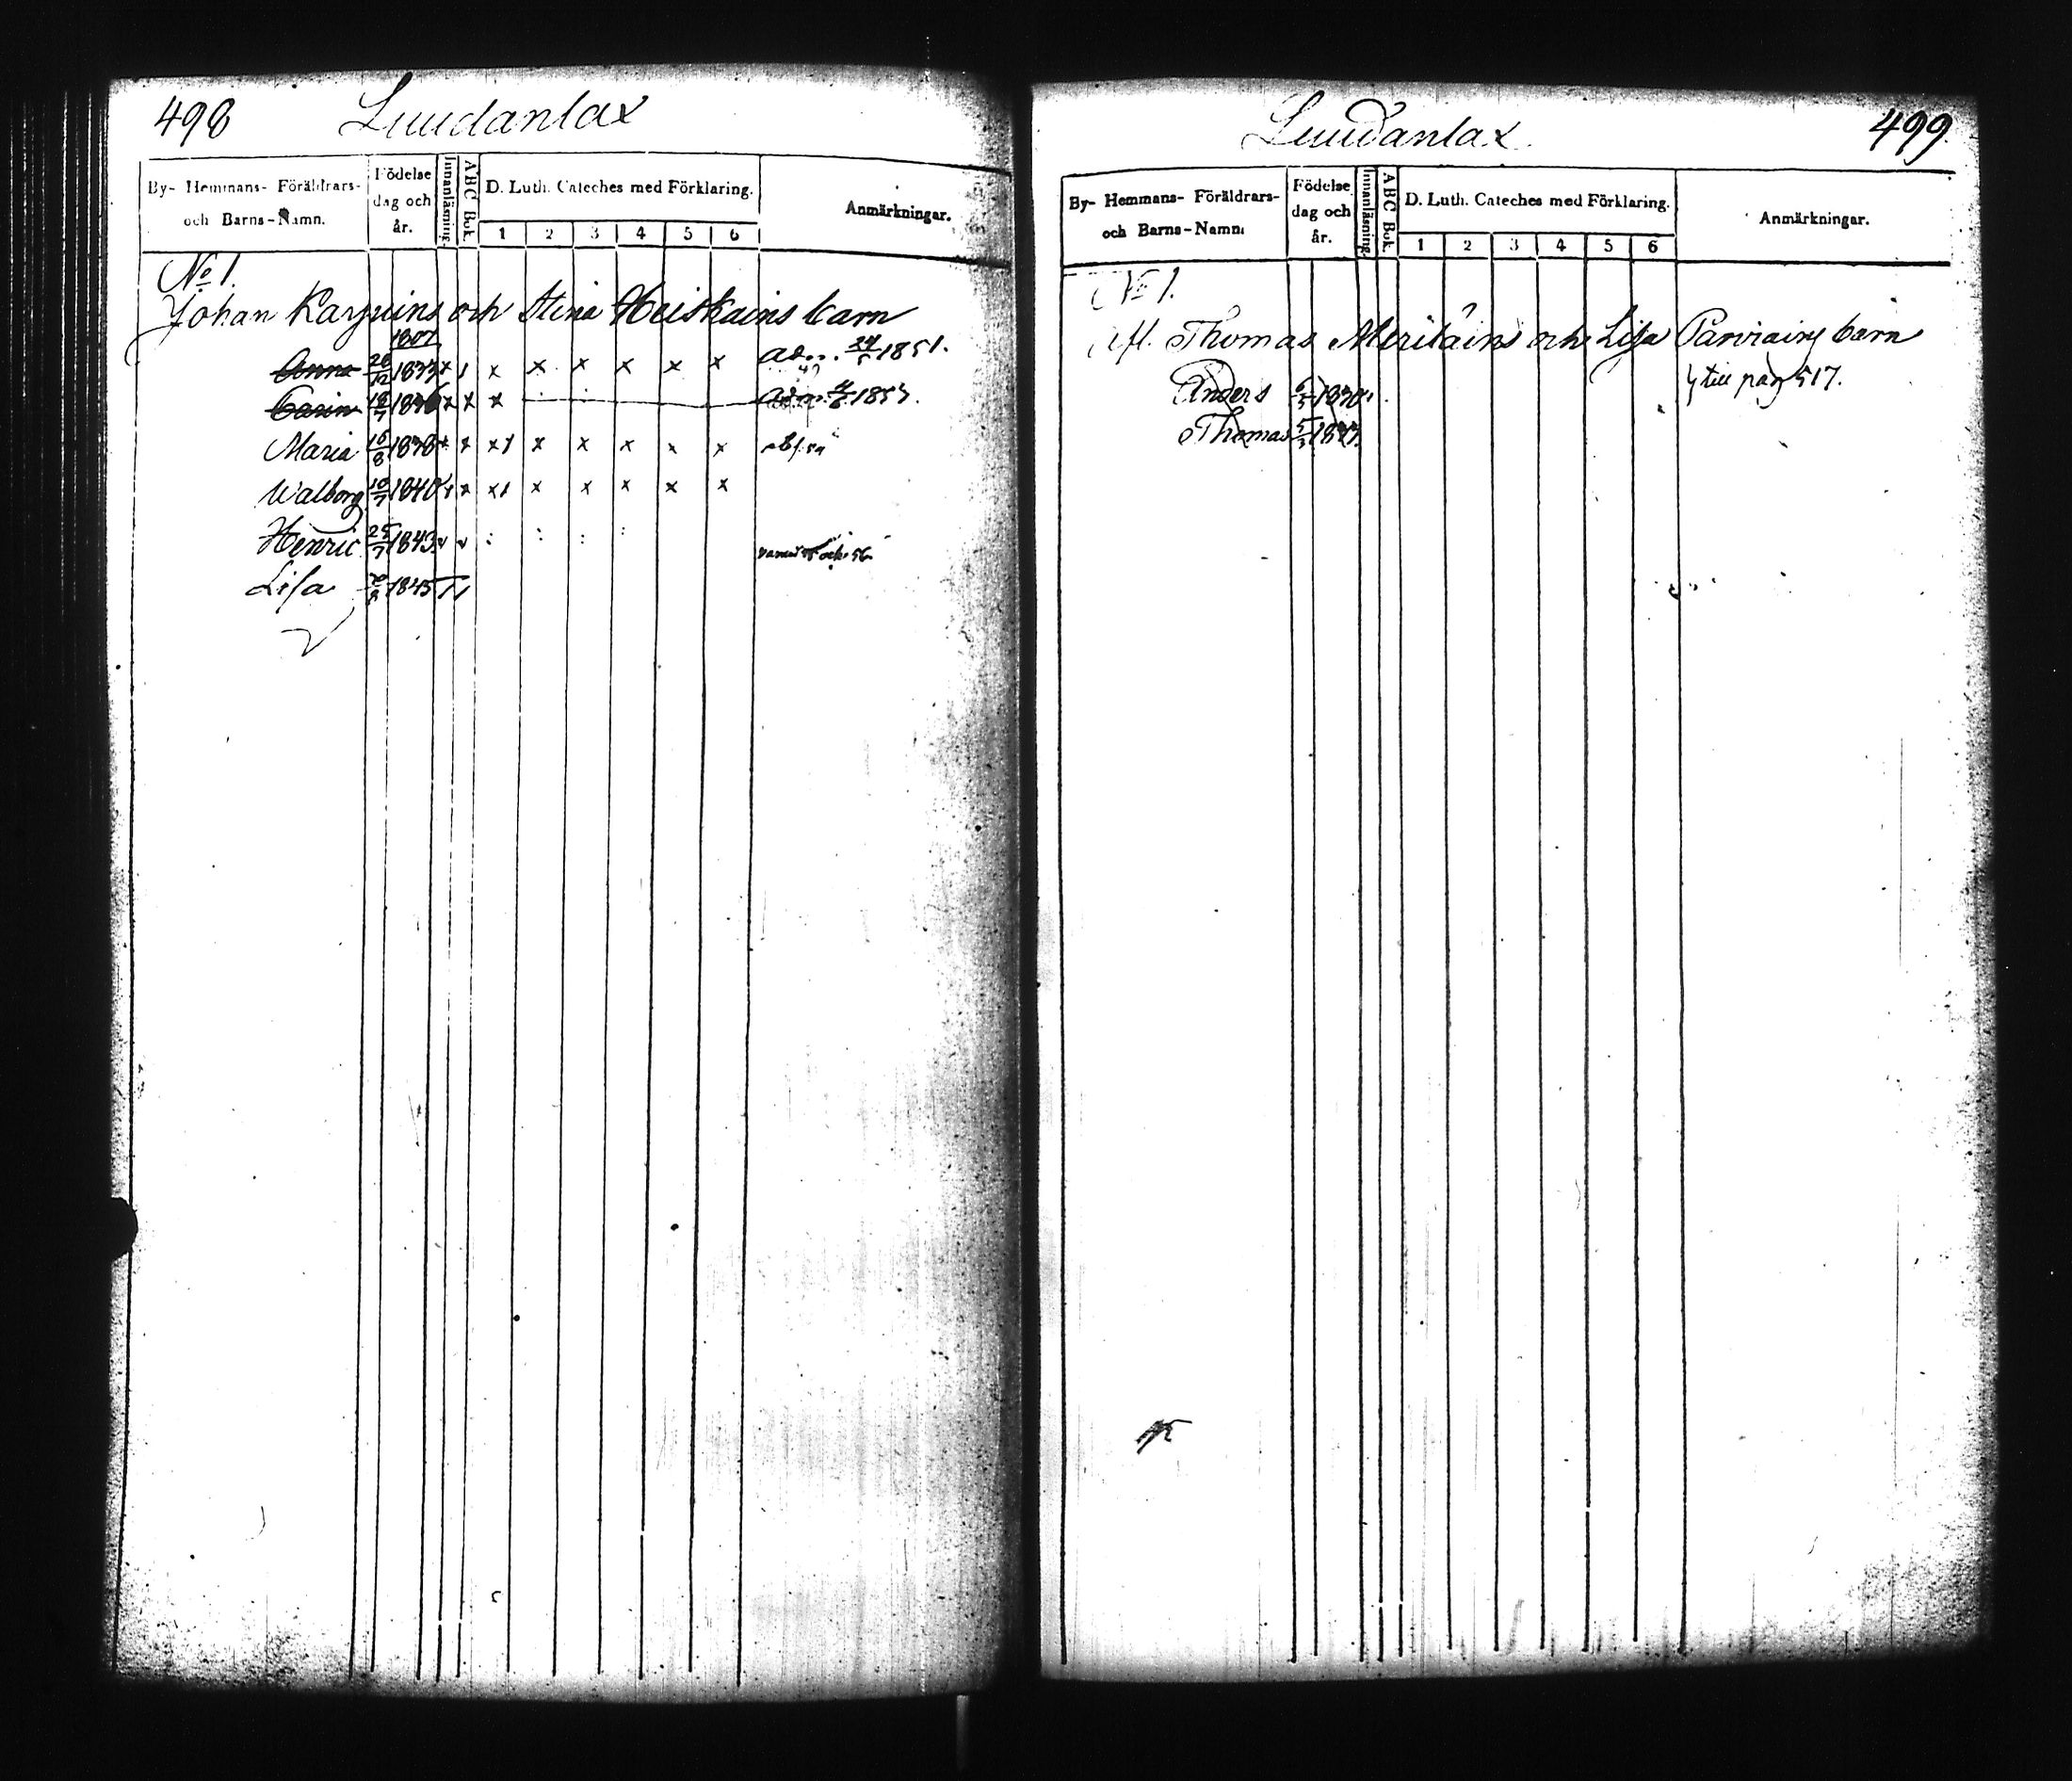 498 Luudanlax
By- Hemmans- Föräldrars- och Barns-Namn.
Födelse dag och år.
Innanläsning.
ABC Bok.
D. Luth. Cateches med Förklaring.
1 2 3 4 5 6
Anmärkningar.
No 1.
Johan Karjuins och Stina Heiskains barn
Anna 26/12 1833 x 1 x x x x x x 1851.
Carin 18/7 1836 x x x 1853.
Maria 16/8 1838 x x x1 x x x x x
Walborg 10/7 1840 x x1 x x x x x
Henric 25/7 1843
Lisa 1845
Luudanlax 499
By- Hemmans- Föräldrars- och Barns-Namn.
Födelse dag och år.
Innanläsning.
ABC Bok.
D. Luth. Cateches med Förklaring.
1 2 3 4 5 6
Anmärkningar.
No 1.
Afl. Thomas Meriläins och Lisa Parviains barn
Anders till pag 517.
Thomas